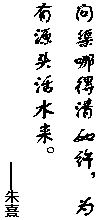 问渠哪得清如许，为
有源头活水来。
——朱熹